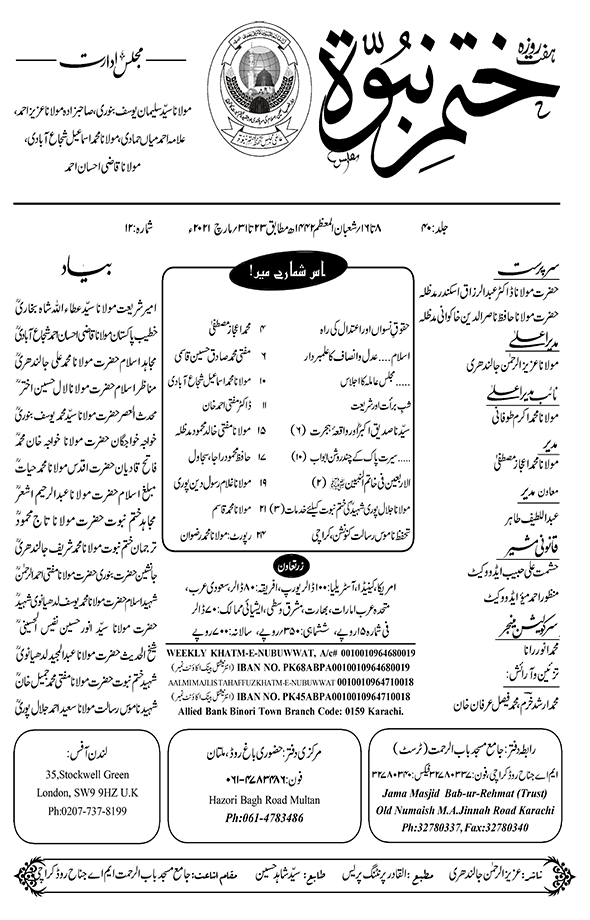 ہفت روزہ
ختم نبوّۃ
مجلس ادارت
مولانا سیّد سلیمان یوسف بنوری، صاحبزادہ مولانا عزیز احمد،
علامہ احمد میاں حمادی، مولانا محمد اسماعیل شجاع آبادی،
مولانا قاضی احسان احمد
جلد: ۴۰
۸ تا ۱۶؍ شعبان المعظم ۱۴۴۲ھ مطابق ۲۳ تا ۳۱؍ مارچ ۲۰۲۱ء
شمارہ: ۱۲
سرپرست
حضرت مولانا ڈاکٹر عبدالرزاق اسکندر مدظلہ
حضرت مولانا حافظ ناصر الدین خاکوانی مدظلہ
مدیر اعلیٰ
مولانا عزیز الرحمٰن جالندھری
نائب مدیر اعلیٰ
مولانا محمد اکرم طوفانی
مدیر
مولانا محمد اعجاز مصطفیٰ
معاون مدیر
عبداللطیف طاہر
قانونی مشیر
حشمت علی حبیب ایڈووکیٹ
منظور احمد میو ایڈووکیٹ
سرکولیشن منیجر
محمد انور رانا
تزئین و آرائش:
محمد ارشد خرم، محمد فیصل عرفان خان
اس شمارے میں!
حقوق نسواں اور اعتدال کی راہ ۴ محمد اعجاز مصطفیٰ
اسلام.... عدل و انصاف کا علمبردار ۶ مفتی محمد صادق حسین قاسمی
..... مجلس عاملہ کا اجلاس ۱۰ مولانا محمد اسماعیل شجاع آبادی
شب برأت اور شریعت ۱۱ ڈاکٹر مفتی احمد خان
سیّدنا صدیق اکبرؓ اور واقعۂ ہجرت (۶) ۱۵ مولانا مفتی خالد محمود مدظلہ
..... سیرت پاک کے چند روشن ابواب (۱۰) ۱۷ حافظ محمود راجا، سجاول
الاربعین فی خاتم النبیین ﷺ (۲) ۱۹ مولانا غلام رسول دین پوری
مولانا جلال پوری شہیدؒ کی ختم نبوت کیلئے خدمات (۳) ۲۱ مولانا محمد قاسم
تحفظ ناموس رسالت کنونشن، کراچی ۲۴ رپورٹ: مولانا محمد رضوان
بیاد
امیر شریعت مولانا سیّد عطاء اللہ شاہ بخاریؒ
خطیب پاکستان مولانا قاضی احسان احمد شجاع آبادیؒ
مجاہد اسلام حضرت مولانا محمد علی جالندھریؒ
مناظر اسلام حضرت مولانا لال حسین اخترؒ
محدث العصر حضرت مولانا سیّد محمد یوسف بنوریؒ
خواجہ خواجگان حضرت مولانا خواجہ خان محمدؒ
فاتح قادیان حضرت اقدس مولانا محمد حیاتؒ
مبلغ اسلام حضرت مولانا عبدالرحیم اشعرؒ
مجاہد ختم نبوت حضرت مولانا تاج محمودؒ
ترجمان ختم نبوت حضرت مولانا محمد شریف جالندھریؒ
جانشین حضرت بنوری حضرت مولانا مفتی احمد الرحمٰنؒ
شہید اسلام حضرت مولانا محمد یوسف لدھیانوی شہیدؒ
حضرت مولانا سیّد انور حسین نفیس الحسینیؒ
شیخ الحدیث حضرت مولانا عبدالمجید لدھیانویؒ
شہید ختم نبوت حضرت مولانا مفتی محمد جمیل خانؒ
شہید ناموس رسالت مولانا سعید احمد جلال پوریؒ
زرتعاون
امریکا، کینیڈا، آسٹریلیا: ۱۰۰ ڈالر یورپ، افریقہ: ۸۰ ڈالر، سعودی عرب،
متحدہ عرب امارات، بھارت، مشرق وسطیٰ، ایشیائی ممالک: ۷۰ ڈالر
فی شمارہ ۱۵ روپے، ششماہی: ۳۵۰ روپے، سالانہ: ۷۰۰ روپے
WEEKLY KHATM-E-NUBUWWAT, A/c# 0010010964680019
IBAN NO. PK68ABPA0010010964680019 (انٹرنیشنل بینک اکاؤنٹ نمبر)
AALMI MAJLIS TAHAFFUZ KHATM-E-NUBUWWAT 0010010964710018
IBAN NO. PK45ABPA0010010964710018 (انٹرنیشنل بینک اکاؤنٹ نمبر)
Allied Bank Binori Town Branch Code: 0159 Karachi.
رابطہ دفتر: جامع مسجد باب الرحمت (ٹرسٹ)
ایم اے جناح روڈ کراچی، فون: ۳۲۷۸۰۳۳۷ فیکس: ۳۲۷۸۰۳۴۰
Jama Masjid Bab-ur-Rehmat (Trust)
Old Numaish M.A.Jinnah Road Karachi
Ph:32780337, Fax:32780340
مرکزی دفتر: حضوری باغ روڈ، ملتان
فون: ۰۶۱-۴۷۸۳۴۸۶
Hazori Bagh Road Multan
Ph:061-4783486
لندن آفس:
35,Stockwell Green
London, SW9 9HZ U.K
Ph:0207-737-8199
ناشر: عزیز الرحمٰن جالندھری مطبع: القادر پرنٹنگ پریس طابع: سیّد شاہد حسین مقام اشاعت: جامع مسجد باب الرحمت ایم اے جناح روڈ کراچی